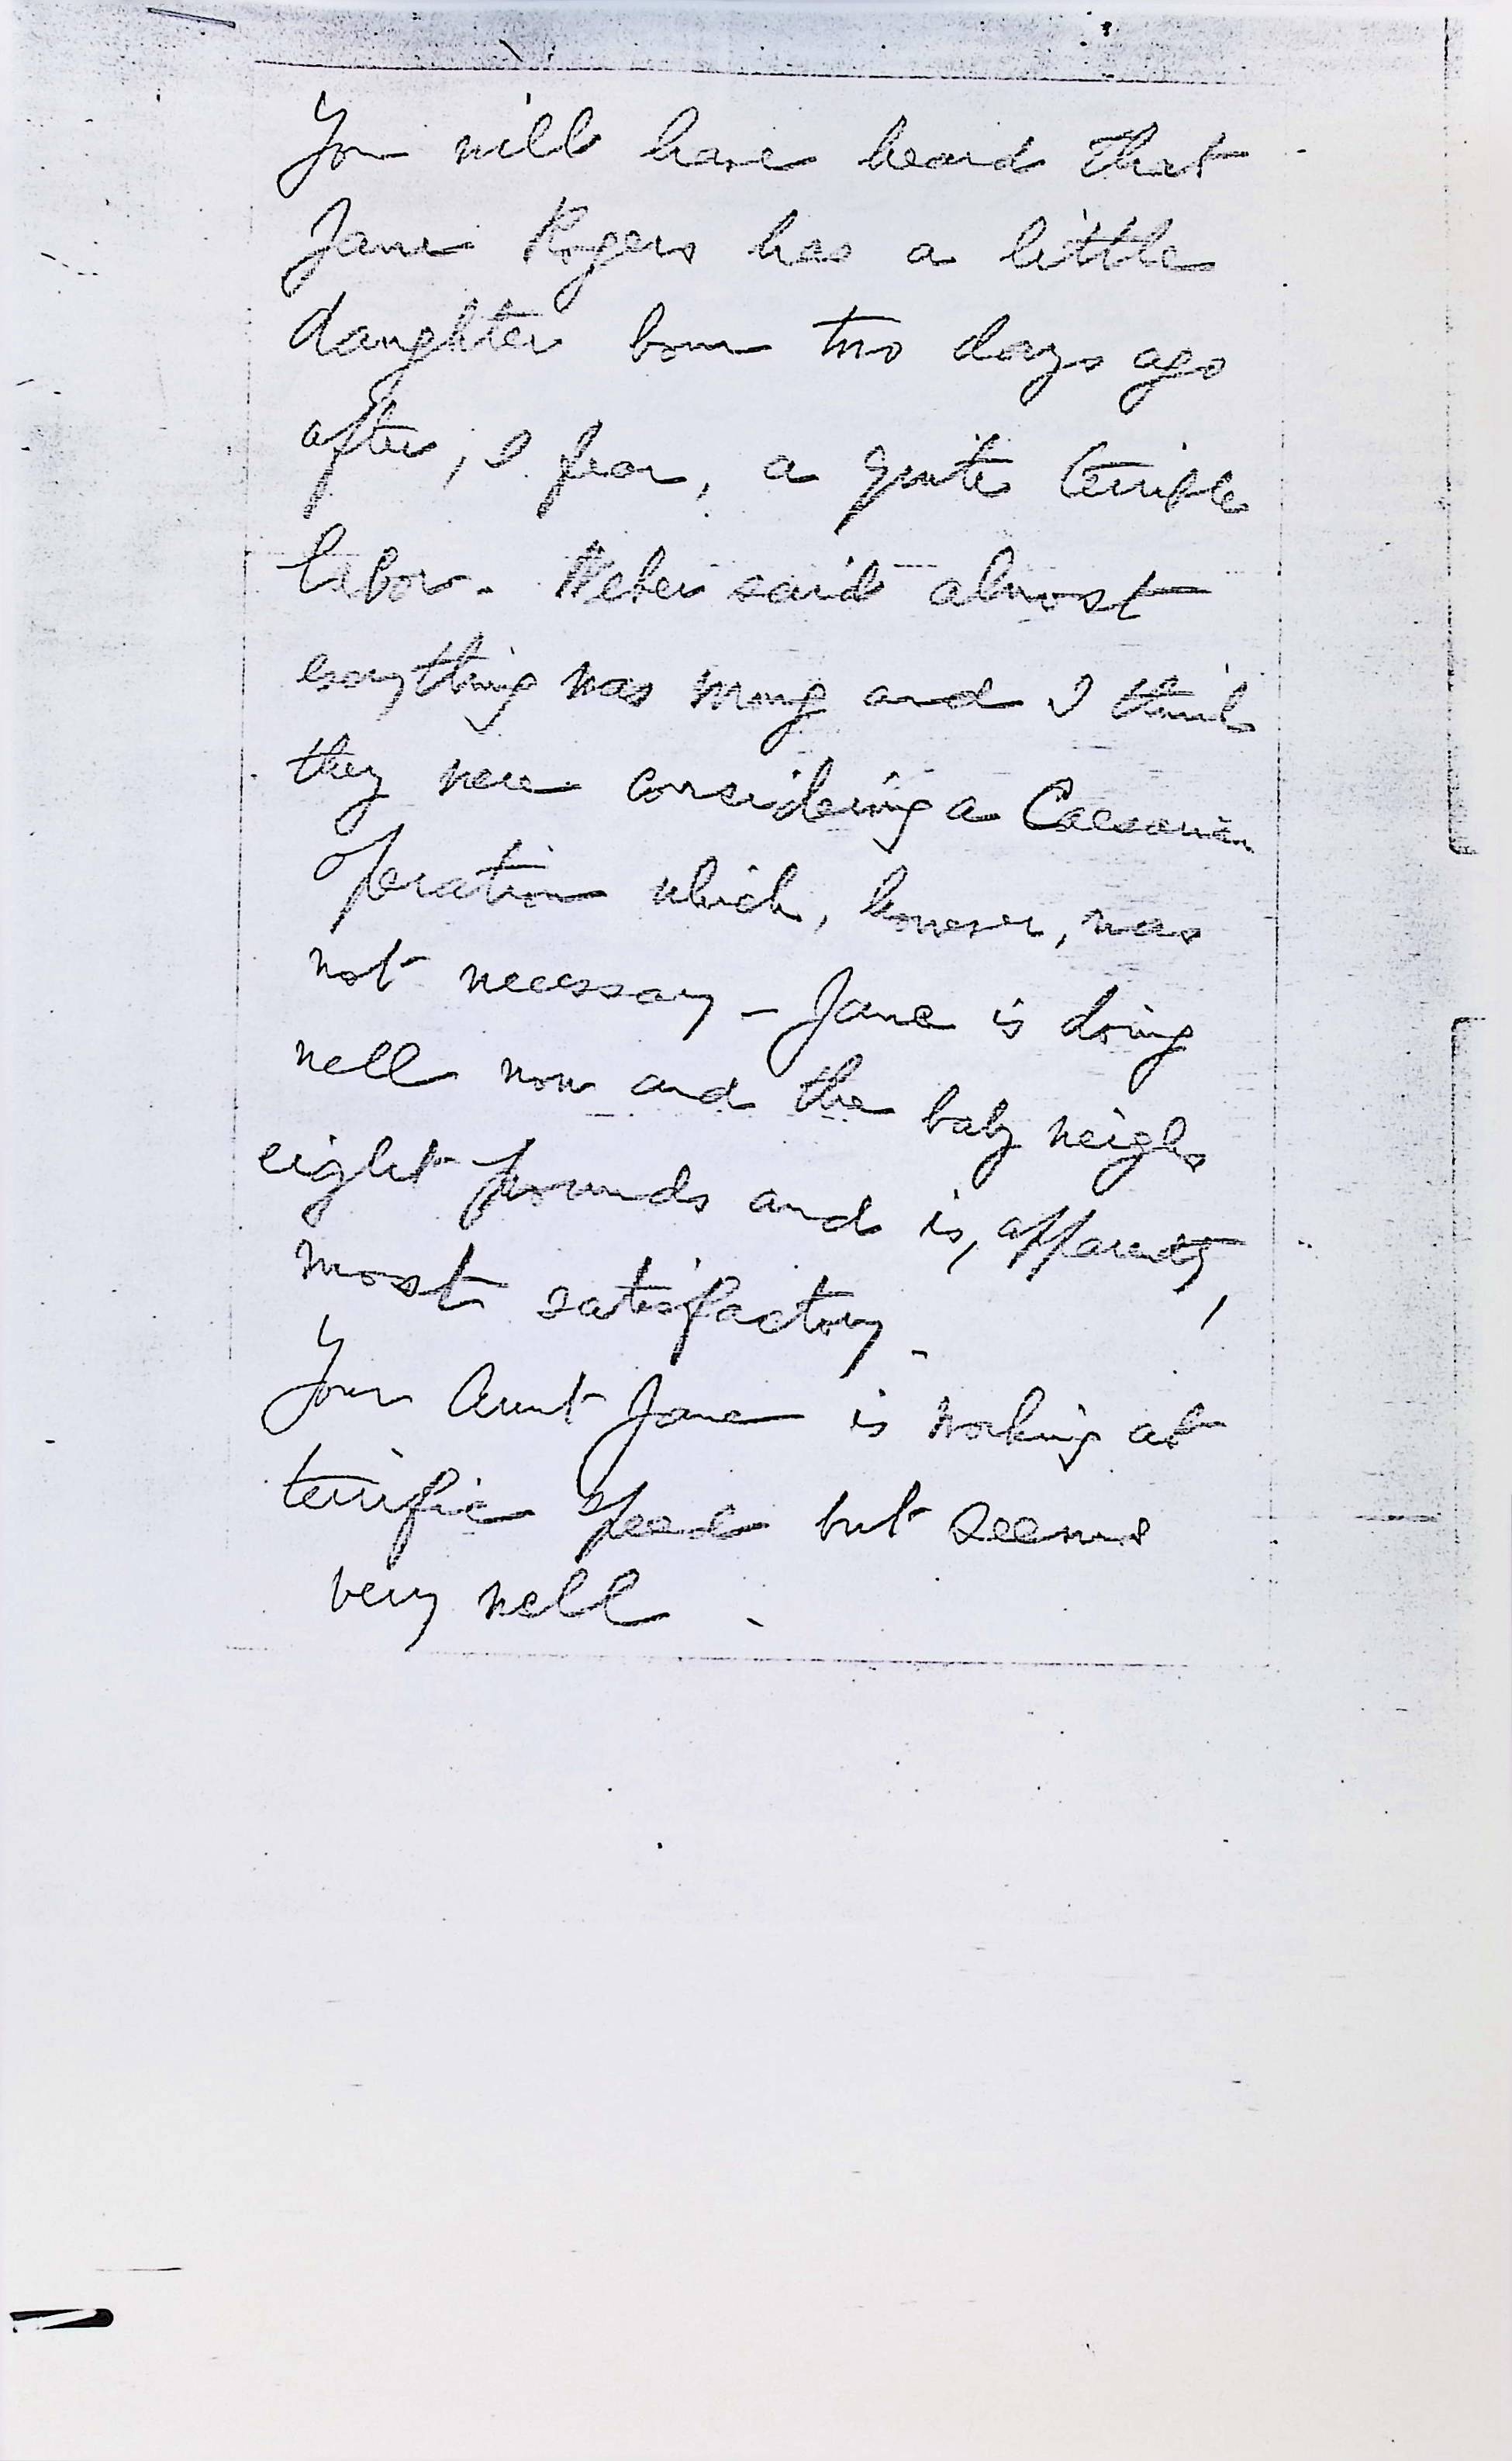 You will have heard that
Jane Rogers has a little
daughter born two days ago
after, I fear, a quite terrible
labor. Weber said almost
everything was wrong and I think
they were considering a Caesarian
operation which, however, was
not necessary - Jane is doing
well now and the baby weighs
eight pounds and is, apparently,
most satisfactory.
Your Aunt Jane is working at
terrific speed but seems
very well.